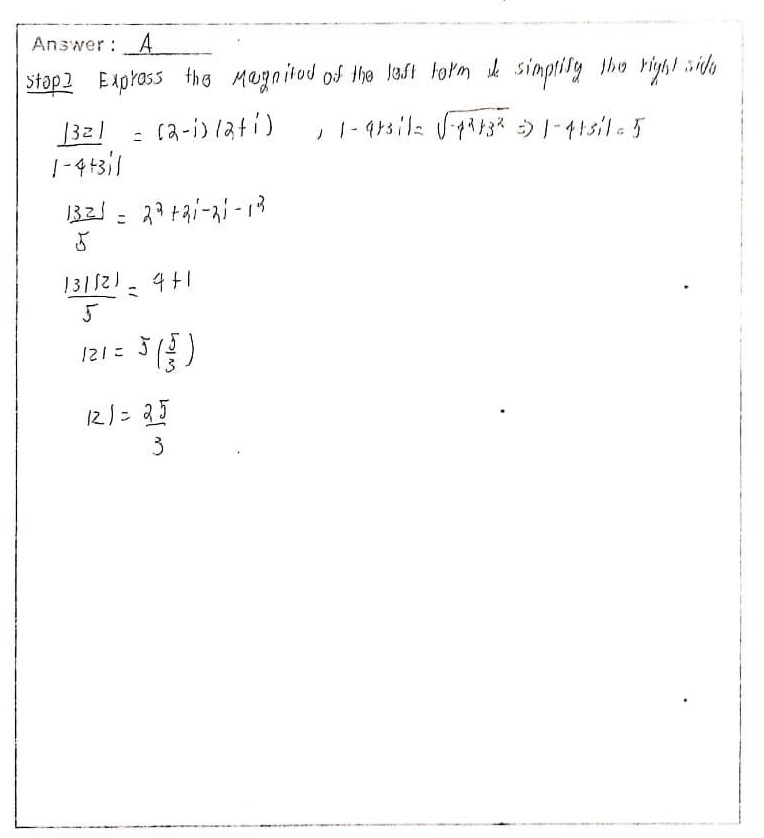 Answer : A
Step 2 Express the Magnitud of the left term & simplify the right side
|3z| / |-4+3i| = (2-i)(2+i) , |-4+3i| = √-4²+3² ⇒ |-4+3i| = 5
|3z| / 5 = 2²+2i-2i-i²
|3||z| / 5 = 4+1
|z| = 5(5/3)
|z| = 25/3